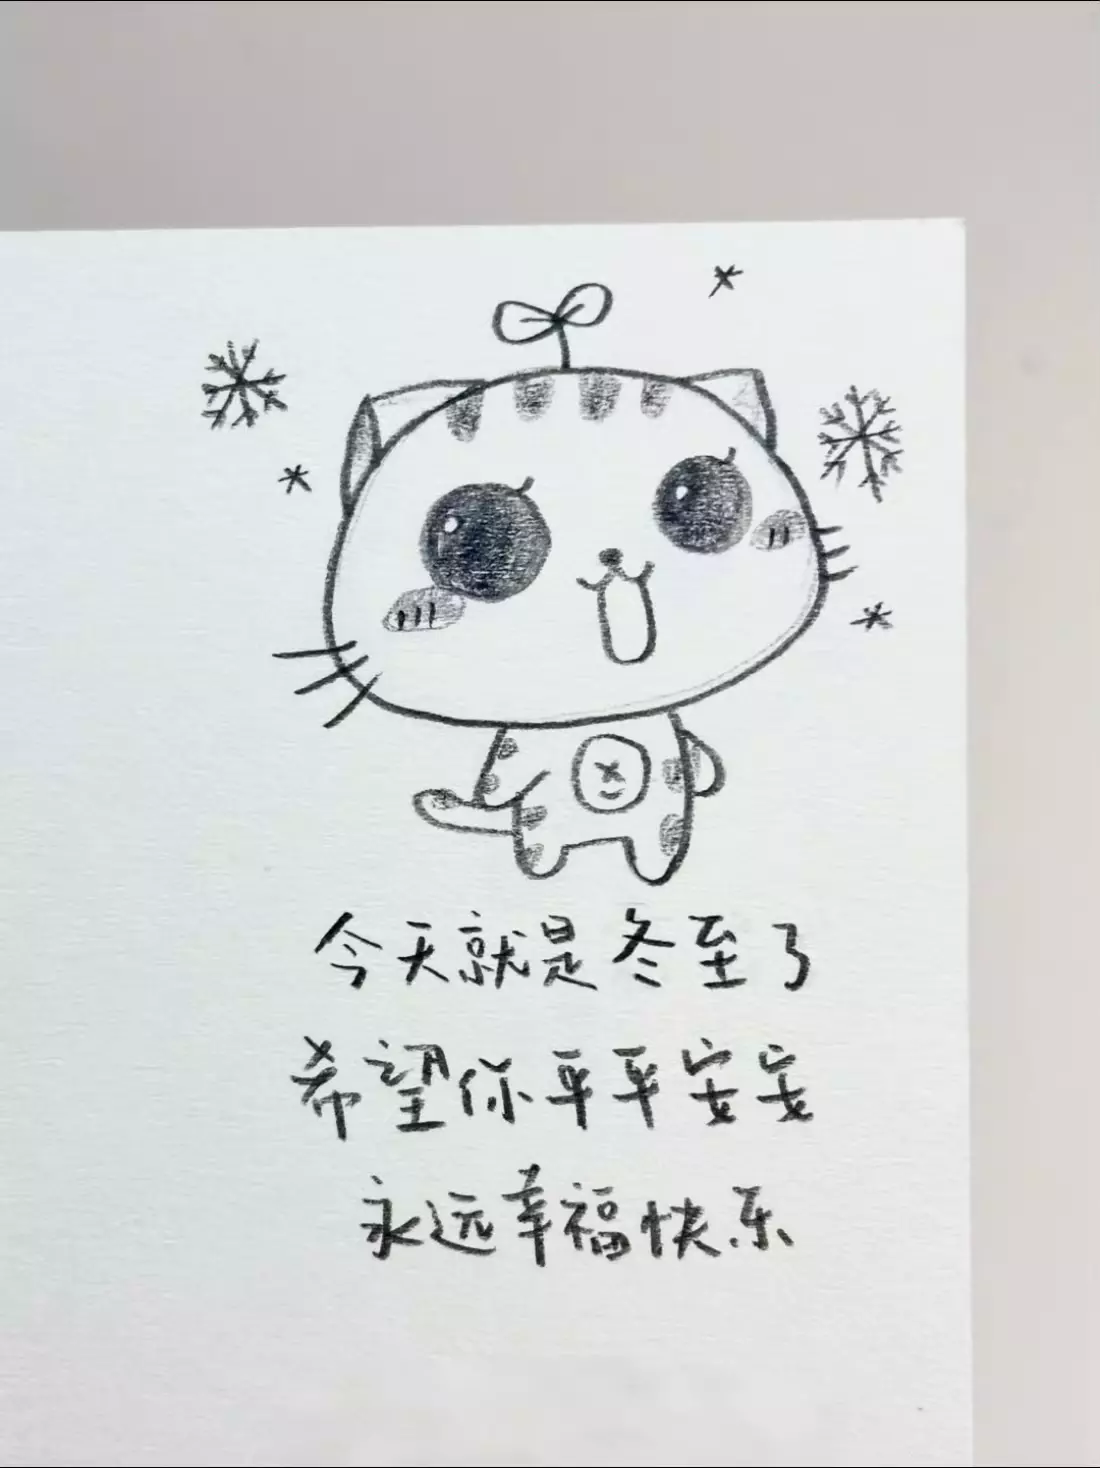 今天就是冬至了
希望你平平安安
永远幸福快乐